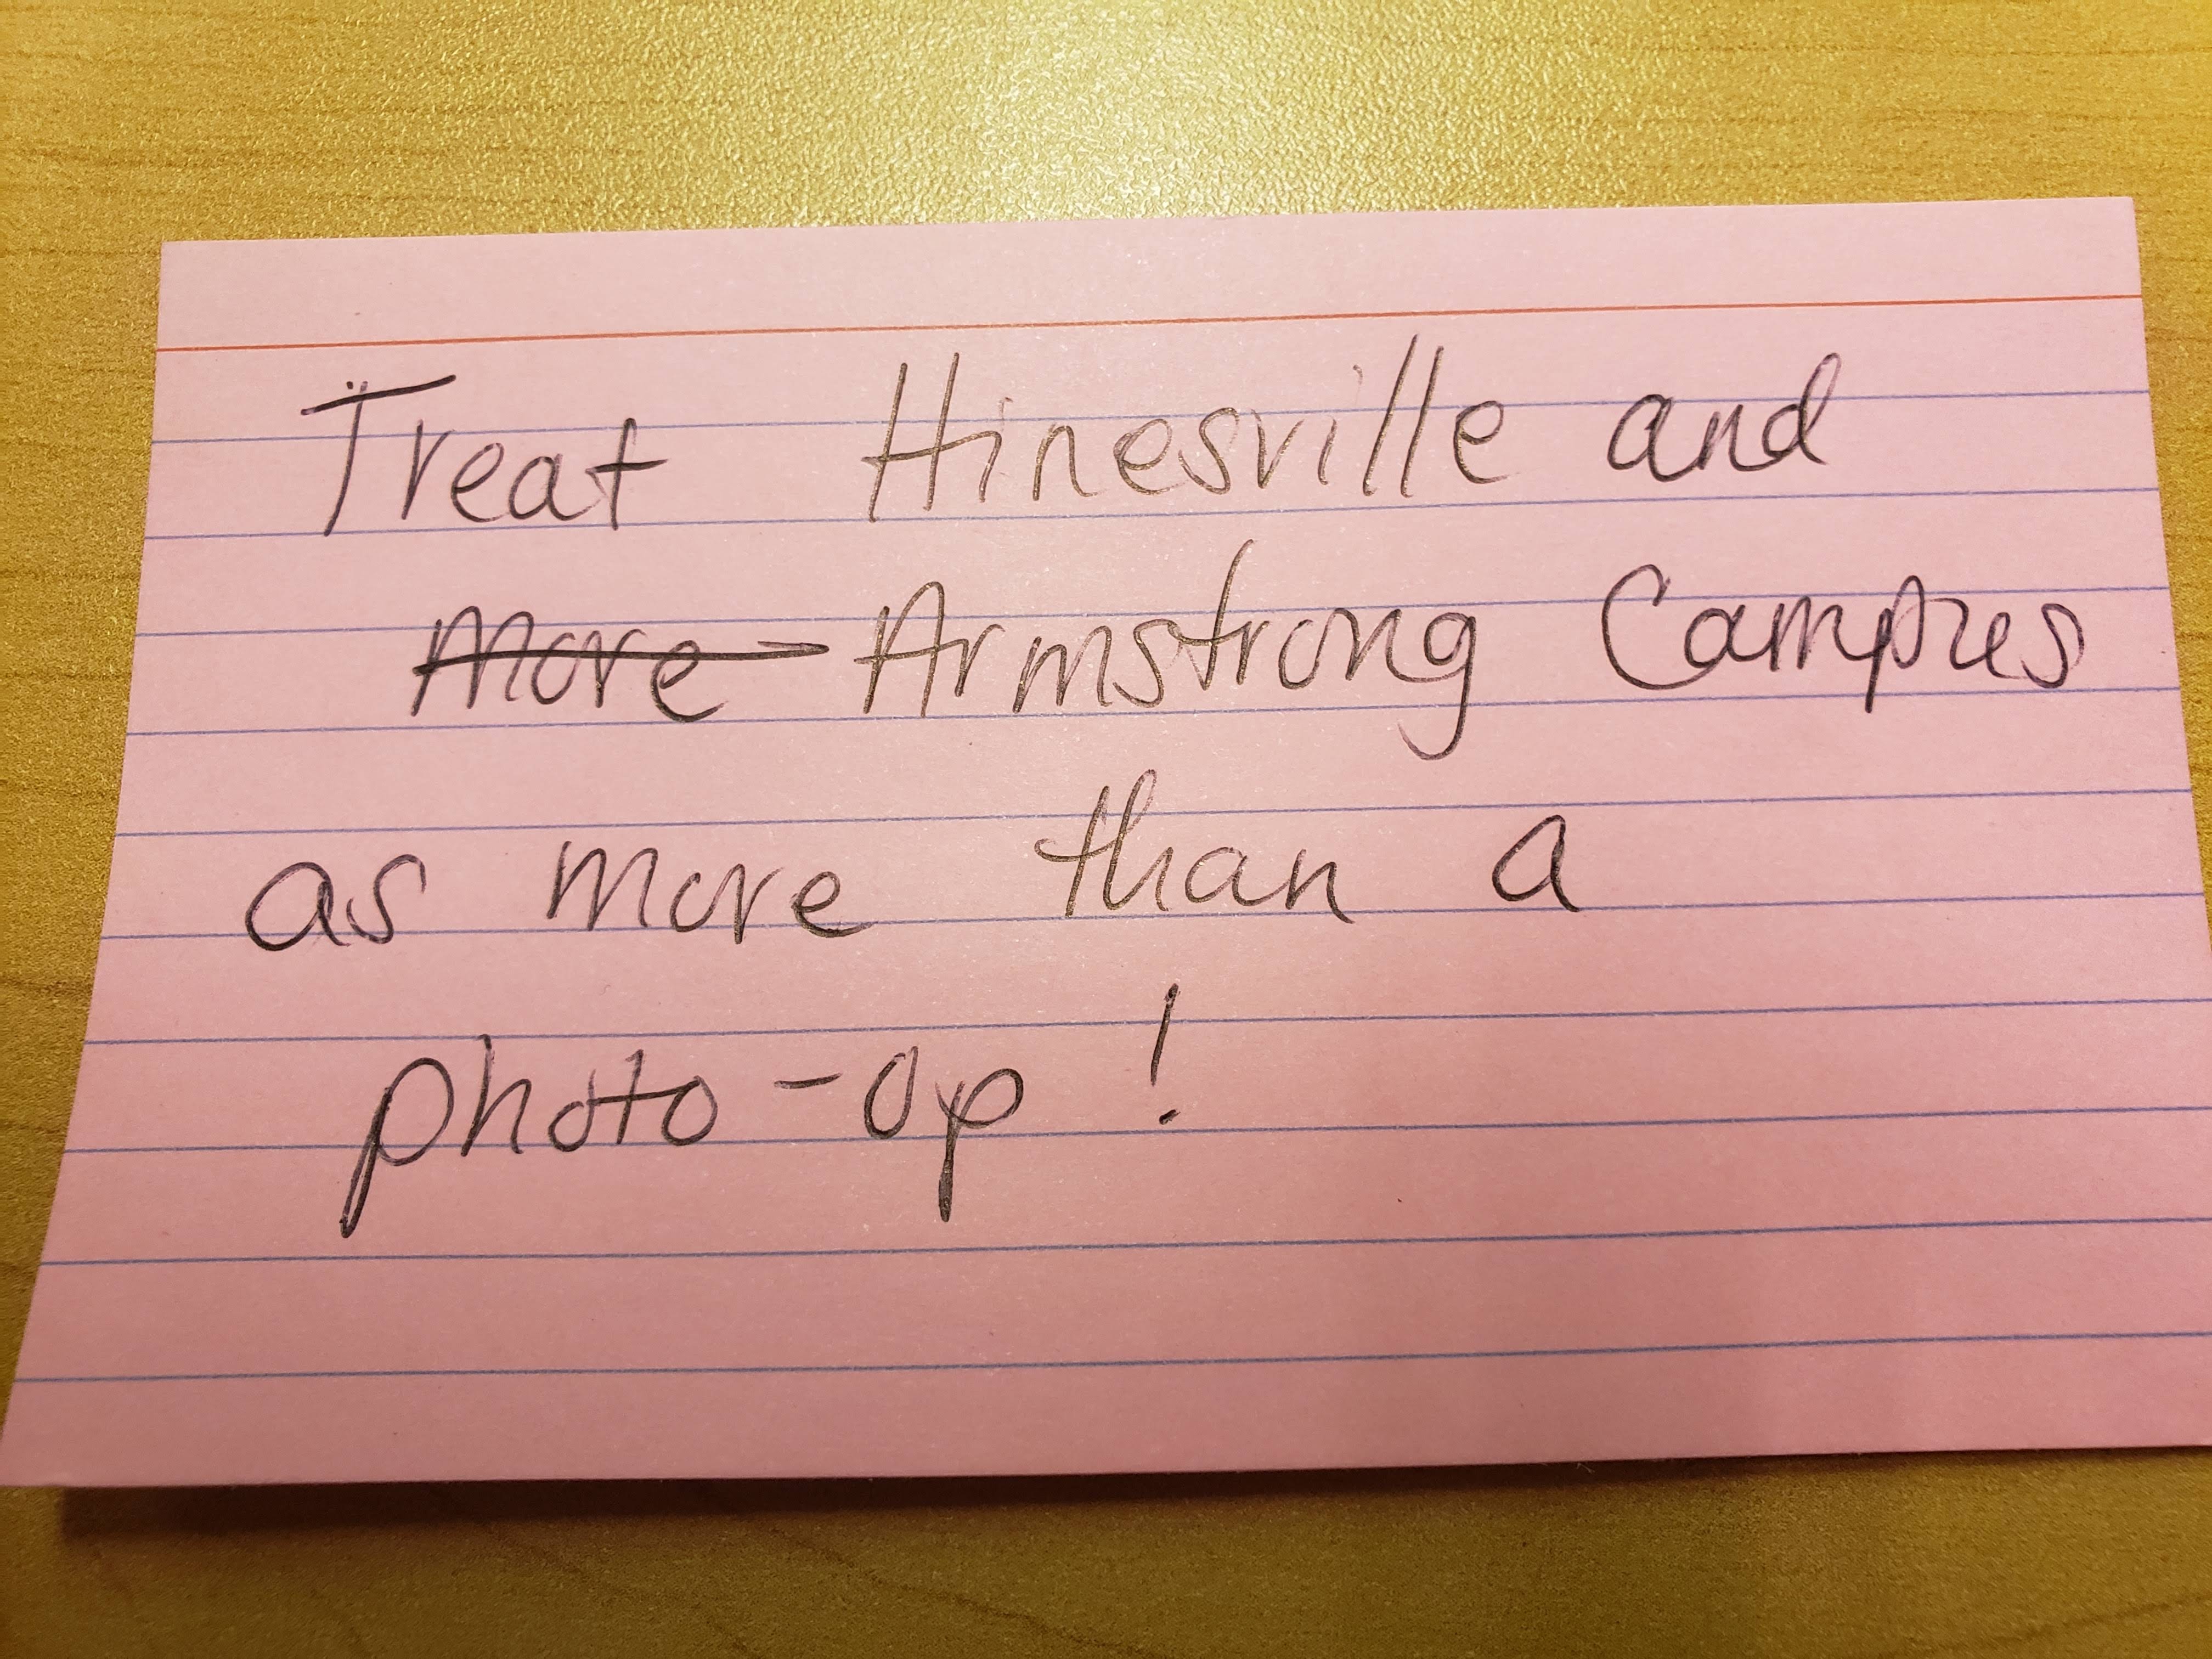 Treat Hinesville and
more Armstrong Campus
as more than a
photo-op!